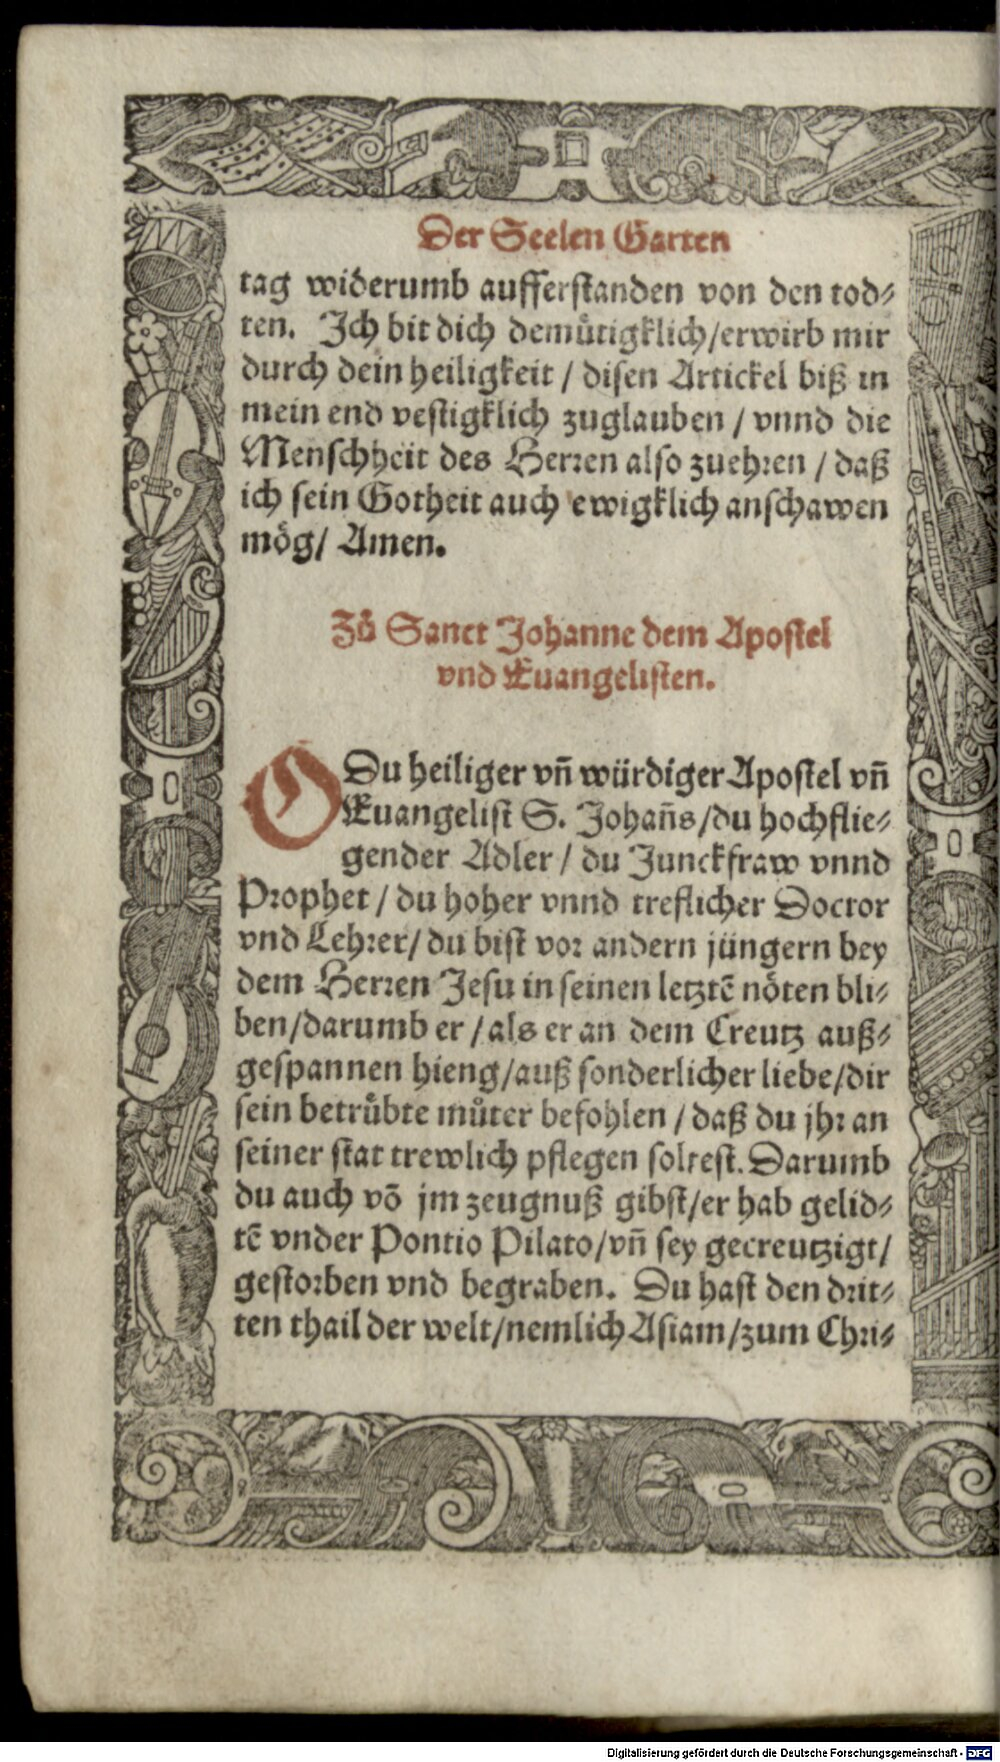 Der Seelen Garten
tag widerumb aufferstanden von den tod⸗
ten. Jch bit dich demuͤtigklich/erwirb mir
durch dein heiligkeit / disen Artickel biß in
mein end vestigklich zuglauben / vnnd die
Menschheit des Herꝛen also zuehꝛen / daß
ich sein Gotheit auch ewigklich anschawen
moͤg/ Amen.
Zů Sanct Johanne dem Apostel
vnd Euangelisten.
ODu heiliger vñ würdiger Apostel vñ
Euangelist S. Johañs/du hochflie⸗
gender Adler / du Junckfraw vnnd
Pꝛophet / du hoher vnnd treflicher Doctor
vnd Lehꝛer/ du bist voꝛ andern jüngern bey
dem Herꝛen Jesu in seinen letztẽ noͤten bli⸗
ben/darumb er / als er an dem Creutz auß⸗
gespannen hieng/auß sonderlicher liebe/dir
sein betruͤbte můter befohlen / daß du jhꝛ an
seiner stat trewlich pflegen soltest. Darumb
du auch võ jm zeugnuß gibst/er hab gelid⸗
tẽ vnder Pontio Pilato/vñ sey gecreutzigt/
gestoꝛben vnd begraben. Du hast den dꝛit⸗
ten thail der welt/nemlich Asiam/zum Chꝛi⸗
Digitalisierung gefördert durch die Deutsche Forschungsgemeinschaft - DFG